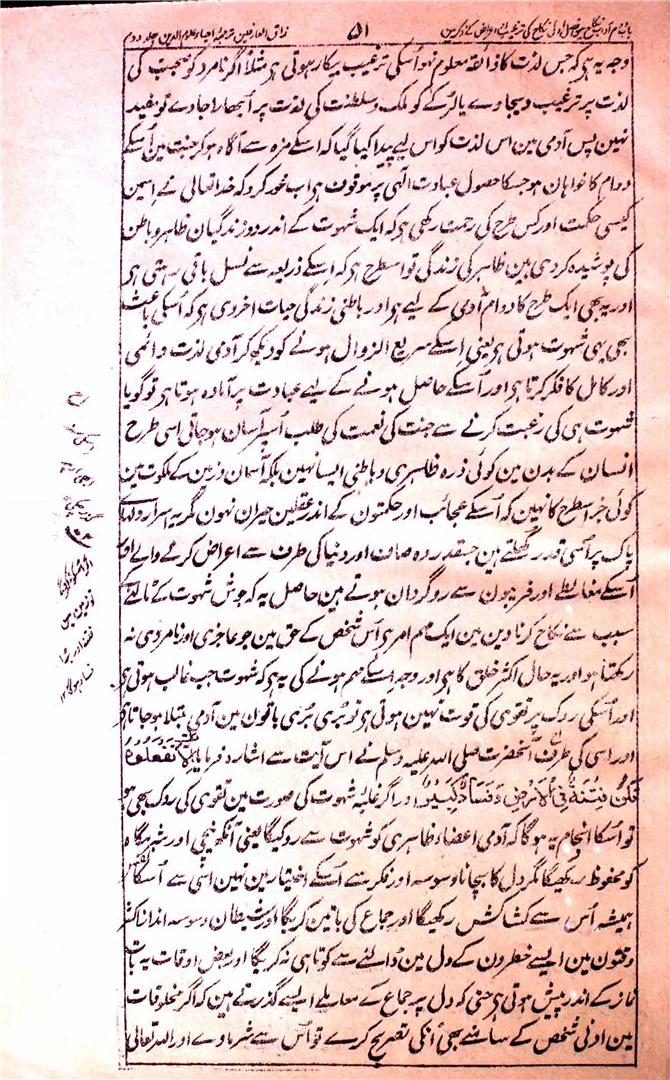 باب دوم آداب نکاح میں فصل اول نکاح کی ترغیب اور اعراض کے ذکر میں ۵۱ مذاق العارفین ترجمہ احیاء علوم الدین جلد دوم
وجہ یہ ہی کہ جس لذت کا ذائقہ معلوم نہو اُسکی ترغیب بیکار ہوتی ہی مثلاً اگر نامرد کو صحبت کی
لذت پر ترغیب دیجاوے یا لڑکے کو ملک و سلطنت کی لذت پر اُبھارا جاوے تو مفید
نہین پس آدمی مین اس لذت کو اس لیے پیدا کیا گیا کہ اسکے مزہ سے آگاہ ہو کر جنت مین اُسکے
دوام کا خواہان ہو جسکا حصول عبادت الٰہی پر موقوف ہی اب غور کرو کہ خدا تعالیٰ نے اسمین
کیسی حکمت اور کس طرح کی رحمت رکھی ہی کہ ایک شہوت کے اندر دو زندگیان ظاہر و باطن
کی پوشیدہ کر دی ہین ظاہر کی زندگی تو اسطرح ہی کہ اسکے ذریعہ سے نسل باقی رہتی ہی
اور یہ بھی ایک طرح کا دوام آدمی کے لیے ہی اور باطنی زندگی حیات اخروی ہی کہ اُسکی باعث
بھی یہی شہوت ہوتی ہی یعنی اسکے سریع الزوال ہونے کو دیکھ کر آدمی لذت دائمی
اور کامل کا فکر کرتا ہی اور اُسکے حاصل ہونے کے لیے عبادت پر آمادہ ہوتا ہی تو گویا
شہوت ہی کی رغبت کرنے سے جنت کی نعمت کی طلب اُسپر آسان ہو جاتی اسی طرح
انسان کے بدن مین کوئی ذرہ ظاہری و باطنی ایسا نہین بلکہ آسمان و زمین کے ملکوت مین
کوئی جز اسطرح کا نہین کہ اُسکے عجائب اور حکمتون کے اندر عقلین حیران نہون مگر یہ اسرار دلہای
پاک پر اُسی قدر کھلتے ہین جسقدر وہ صاف اور دنیا کی طرف سے اعراض کرنے والے اور
اُسکے مغالطے اور فریبون سے روگردان ہوتے ہین حاصل یہ کہ جوش شہوت کے ٹالنے کے
سبب سے نکاح کرنا دین مین ایک مہم امر ہی اُس شخص کے حق مین جو عاجزی اور نامردی نہ
رکھتا ہو اور یہ حال اکثر خلق کا ہی اور وجہ اسکے مہم ہونے کی یہ ہی کہ شہوت جب غالب ہوتی ہی
اور اُسکی روک پر تقوی کی قوت نہین ہوتی ہی تو بُری بُری باتون مین آدمی مبتلا ہو جاتا ہی
اور اسی کی طرف آنحضرت صلی اللہ علیہ وسلم نے اس آیت سے اشارہ فرمایا اِلَّا تَفْعَلُوْهُ
تَكُنْ فِتْنَةٌ فِی الْاَرْضِ وَفَسَادٌ كَبِيْرٌ اور اگر غلبہ شہوت کی صورت مین تقوی کی روک بھی ہو
تو اُسکا انجام یہ ہو گا کہ آدمی اعضاء ظاہری کو شہوت سے روکیگا یعنی آنکھ نیچی اور شرمگاہ
کو محفوظ رکھیگا مگر دل کا بچانا وسوسہ اور فکر سے اُسکے اختیار مین نہین اسی سے اُسکا نفس
ہمیشہ اُس سے کشاکش رکھیگا اور جماع کی باتین کریگا اور شیطان وسوسہ انداز اکثر
وقتون مین ایسے خطرون کے دل مین ڈالنے سے کوتاہی نہ کریگا اور بعض اوقات یہ بات
نماز کے اندر پیش ہوتی ہی حتی کہ دل پر جماع کے معاملے ایسے گذرتے ہین کہ اگر مخلوقات
مین ادنی شخص کے سامنے بھی اُنکی تصریح کرے تو اُس سے شرماوے اور اللہ تعالی